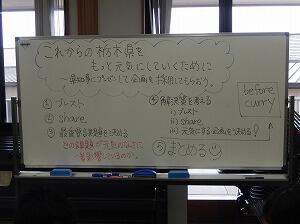 これからの栃木県を
もっと元気にしていくために
〜県知事にプレゼンして企画を採用してもらおう。
① ブレスト
② share
③ 最重要な課題を決める
どの課題が元気のなさに
影響しているのか。
④ 解決策を考える
i) ブレスト
ii) share
iii) 元気にする企画を決める!
⑤ まとめる
before
curry